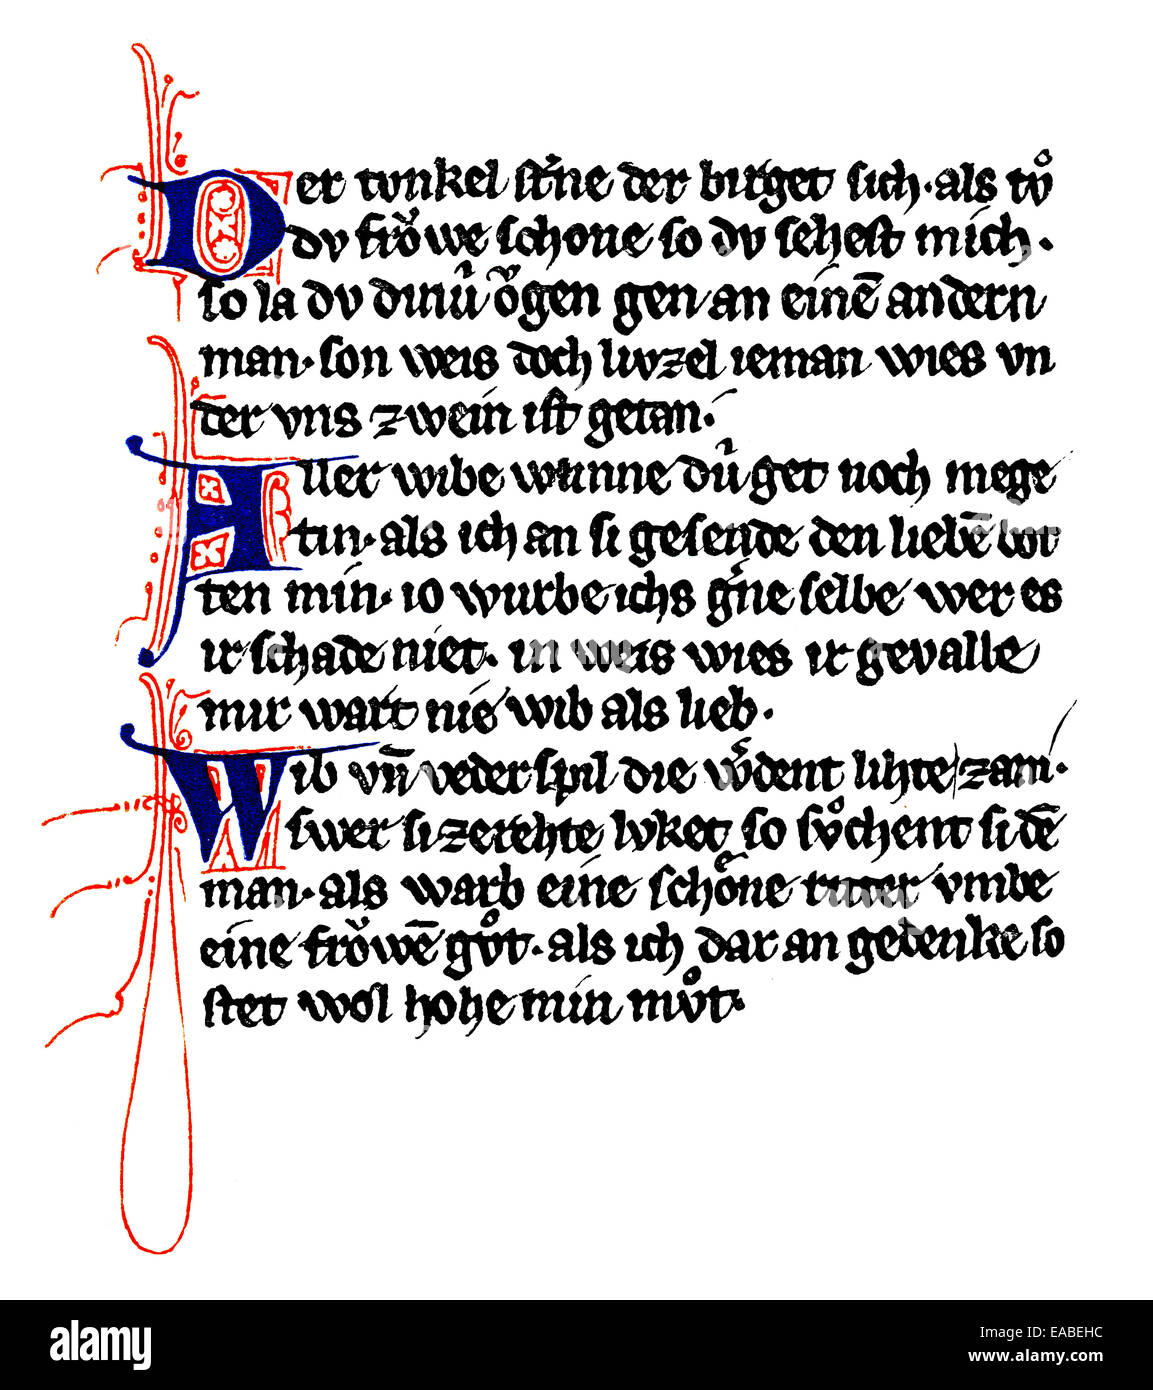 Der tunkel ſt̾ne der birget ſich · als tvͦ
dv frǒwe schone so dv sehest mich ·
so la dv dinú ǒgen gen an einē andern
man · son weis doch lúzel ieman wies vn
der vns zwein iſt getan ·
Aller wibe wunne dú get noch mege
tin · als ich an si gesende den liebē bot
ten min · io wurbe ichs g̾ne selbe wer es
ir schade niet · in weis wies ir gevalle
mir wart nie wib als lieb ·
Wib vn̄ vederspil die w̾dent lihte zam ·
swer si zerehte luket so svͦchent si dē
man · als warb eine schoͤne ritter vmbe
eine frǒwē gvͦt · als ich dar an gedenke so
stet wol hohe min mvͦt ·
alamy
alamy
alamy
Image ID: EABEHC
www.alamy.com